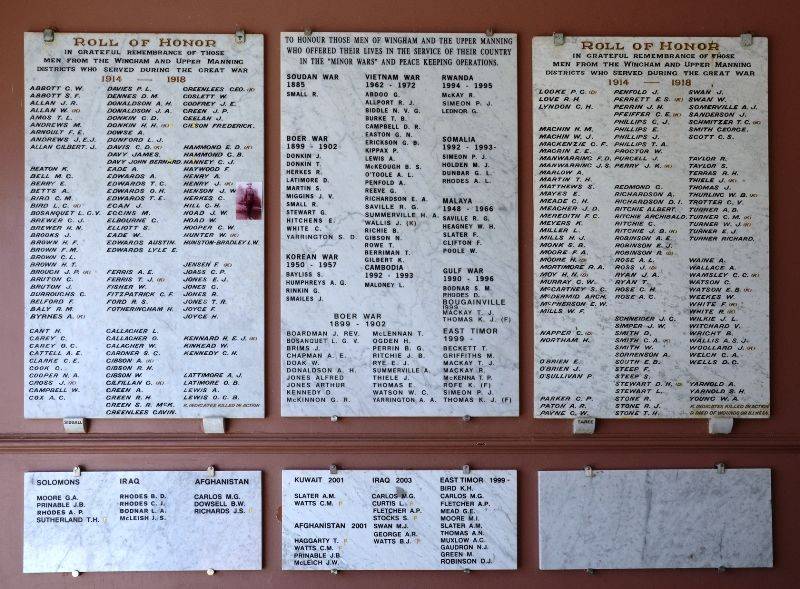 ROLL OF HONOR
IN GRATEFUL REMEMBRANCE OF THOSE
MEN FROM THE WINGHAM AND UPPER MANNING
DISTRICTS WHO SERVED DURING THE GREAT WAR
1914 — 1918
ABBOTT C. W.
ABBOTT S. F.
ALLAN J. R.
ALLAN W. (K)
AMOS T. L.
ANDREWS M.
ARNOULT F. E.
ANDREWS J. E. J.
ALLAN GILBERT. J.
HEATON K.
BELL M. C.
BERRY E.
BETTS A.
BIRD C. M.
BIRD L. C. (K)
BOSANQUET L. G. V.
BREWER C. J.
BREWER H. N.
BROOKS J.
BROWN H. F.
BROWN F. M.
BROWN C. L.
BROWN H. T.
BROUGH J. P. (K)
BRUTON C.
BRUTON J.
BURROUGHS C.
BELFORD F.
BALY R. M.
BYRNES A. (K)
CANT H.
CAREY C.
CAREY O. C.
CATTELL A. E.
CLARKE C. E.
COOK C.
COOPER N. A.
CROSS J. (K)
CAMPBELL W.
COX A. C.
DAVIES P. L.
DENNES D. M.
DONALDSON A. H.
DONALDSON J. A.
DONKIN C. D.
DONKIN H. H. (K)
DOWSE A.
DUNFORD L. J.
DAVIS C. D. (K)
DAVY JAMES.
DAVY JOHN BERNARD
EADE A.
EDWARDS A.
EDWARDS T. C.
EDWARDS O. H.
EDWARDS T. E.
EGAN J.
EGGINS M.
ELBOURNE C.
ELLIOTT W. S.
EADE W.
EDWARDS AUSTIN.
EDWARDS LYLE E.
FERRIS A. E.
FERRIS T. J. (K)
FISHER W.
FITZPATRICK C. F.
FORD R. S.
FOTHERINGHAM H.
GALLACHER L.
GALLACHER G.
GALACHER W.
GARDNER S. C.
GIBSON A. (K)
GIBSON R. H.
GIBSON W.
GILFILLAN C. (K)
GREEN A.
GREEN R. H.
GREEN S. R. McK.
GREENLEES GAVIN.
GREENLEES GEO. (K)
GOSLETT W.
GODFREY J. E.
GREEN J. P.
GEELAN J.
GILSON FREDERICK.
HAMMOND E. D. (K)
HAMMOND C. B.
HANNEY C. J.
HAYWOOD F.
HENRY A.
HENRY J. (K)
HENSON J. W.
HERKES C.
HILL C. H.
HOAD J. W.
HOAD W.
HOOPER C. W.
HUNTER W. (K)
HUNSTON-BRADLEY I. W.
JENSEN F. (K)
JOASS C. P.
JONES E. J.
JONES G.
JONES R.
JONES T. R.
JOYCE F.
JOYCE K.
KENNARD H. E. J. (K)
KINKEAD W.
KENNEDY C. H.
LATTIMORE A. J.
LATIMORE O. B.
LEWIS A.
LEWIS O. C. B.
K. INDICATES KILLED IN ACTION
SIDGALL
TO HONOUR THOSE MEN OF WINGHAM AND THE UPPER MANNING
WHO OFFERED THEIR LIVES IN THE SERVICE OF THEIR COUNTRY
IN THE "MINOR WARS" AND PEACE KEEPING OPERATIONS.
SOUDAN WAR
1885
SMALL R.
BOER WAR
1899 - 1902
DONKIN J.
DONKIN T.
HERKES R.
LATIMORE D.
MARTIN S.
MIGGINS J. V.
SMALL R.
STEWART G.
HITCHENS E.
WHITE C.
YARRINGTON S. D.
KOREAN WAR
1950 - 1957
BAYLISS S.
HUMPHREYS A. G.
RINKIN G.
SMAILES J.
VIETNAM WAR
1962 - 1972
ABDOO G.
ALLPORT R. J.
BIDDLE N. V. G.
BURKE T. B.
CAMPBELL D. R.
EASTON G. N.
ERICKSON G. B.
KIPPAX P.
LEWIS A.
McKEOUGH B. S.
O'TOOLE A. L.
PENFOLD A.
REEVE G.
RICHARDSON E. A.
SAVILLE R. G.
SUMMERVILLE H. A.
WALLIS J. (K)
RICHIE B.
GIBSON N.
ROWE T.
BERRIMAN T.
GILBERT K.
CAMBODIA
1992 - 1993
MALONEY L.
RWANDA
1994 - 1995
McKAY R.
SIMEON P. J.
LEDNOR G.
SOMALIA
1992 - 1993
SIMEON P. J.
HOLDEN M. J.
DUNBAR G. L.
RHODES A. L.
MALAYA
1948 - 1966
SAVILLE R. G.
HEAGNEY W. H.
SLATER R.
CLIFTON F.
POOLE W.
GULF WAR
1990 - 1996
BODNAR S. M.
RHODES D.
BOUGAINVILLE
MACKAY T. J.
THOMAS K. J. (F)
BOER WAR
1899 - 1902
BOARDMAN J. REV.
BOSANQUET L. G. V.
BRIMS J.
CHAPMAN A. E.
DOAK W.
DONALDSON A. H.
JONES ALFRED
JONES ARTHUR
KENNEDY D.
McKINNON G. R.
McLENNAN T.
OGDEN H.
PERRIN B. G.
RITCHIE J. B.
RYE E. J.
SUMMERVILLE A.
THIELE J.
THOMAS E.
WATSON W. C.
YARRINGTON, A. A.
EAST TIMOR
1999 -
BECKETT T.
GRIFFITHS M.
MACKAY T. J.
MACKAY R.
McKENNA T. P.
ROFE K. (F)
SIMEON P. J.
THOMAS K. J. (F)
ROLL OF HONOR
IN GRATEFUL REMEMBRANCE OF THOSE
MEN FROM THE WINGHAM AND UPPER MANNING
DISTRICTS WHO SERVED DURING THE GREAT WAR
1914 — 1918
LOOKE P. C. (D)
LOVE R. H.
LYNDON C. H.
MACHIN H. M.
MACHIN W. J.
MACKENZIE C. F.
MAGRIN E. E.
MANWARING F. D.
MANWARING J. S.
MARLOW A.
MARTIN T. H.
MATTHEWS S.
MAYES E.
MEADE C. H.
MEACHER J. D.
MEREDITH F. C.
MEYERS R.
MILLER L.
MILLS H. J.
MONK S. B.
MOORE F. A.
MOORE R. (K)
MORTIMORE R. A.
MOY H. N. (K)
MURRAY C. W.
McCARTNEY S. C.
McDERMID ARCH.
McPHERSON E. W.
MILLS W. F.
NAPPER C. (D)
NORTHAM H.
O'BRIEN E.
O'BRIEN J.
O'SULLIVAN P.
PARKER C. P.
PATON A. R.
PAYNE C. W.
PENFOLD J.
PERRETT E. S. (K)
PERRIN J. M.
PFEIFFER C. E. (K)
PHILLIPS C. J.
PHILLIPS E.
PHILLIPS J.
PHILLIPS T. A.
PROCTOR W.
PURCELL J.
PERRY J. K. (K)
REDMOND C.
RICHARDSON A.
RICHARDSON D. I.
RITCHIE ALBERT.
RITCHIE ARCHIBALD.
RITCHIE C.
RITCHIE J. B. (K)
ROBINSON A. E.
ROBINSON E. J.
ROBINSON R. (D)
ROSE A. L.
ROSS J. (D)
RYAN J. A.
RYAN T.
ROSE C. H.
ROSE A. C.
SCHNEIDER J. C.
SIMPER J. W.
SMITH D.
SMITH G. A. (K)
SMITH W.
SORRENSON A.
SOUTH E. B.
STEEP F.
STEEP S.
STEWART D. H. (D)
STEWART L.
STONE R.
STONE R. J.
STONE T. H.
SWAN J.
SWAN W.
SOMERVILLE A. J.
SANDERSON J.
SCHMITZER T. C. (K)
SMITH GEORGE.
SCOTT C. S.
TAYLOR R.
TAYLOR S.
TERRAS R. H.
THIELE J. (K)
THOMAS J.
THURLING W. B. (K)
TROTTER C. K.
TURNER A. D.
TURNER C. M. (K)
TURNER W. J. (K)
TURNER E. J.
TURNER RICHARD.
WAINE A.
WALLACE A.
WAMSLEY C. C. (K)
WATSON C.
WATSON E. B. (K)
WEEKES W.
WHITE F. (K)
WHITE H. (K)
WILKIE J. L.
WITCHARD V.
WRIGHT B.
WALLIS A. S. J.
WOOLLARD J. (K)
WELCH C. A.
WELLS D. C.
YARNOLD A.
YARNOLD S. H.
YOUNG W. A.
K. INDICATES KILLED IN ACTION
D. DIED OF WOUNDS OR ILLNESS
TAREE
SOLOMONS
MOORE G.A.
PRINABLE J.B.
RHODES A. P.
SUTHERLAND T.H.
IRAQ
RHODES B. D.
RHODES C. J.
BODNAR L. A.
McLEISH J. S.
AFGHANISTAN
CARLOS M.G.
DOWSELL B.W.
RICHARDS J.S. F
KUWAIT 2001
SLATER A.M.
WATTS C.M. F
AFGHANISTAN 2001
HAGGARTY T. F
WATTS C.M. F
PRINABLE J.B.
McLEICH J.W.
IRAQ 2003
CARLOS M.G.
CURTIS L. F
FLETCHER A.P.
STOCKS S. F
SWAN M.J.
GEORGE A.R.
WATTS B.J. F
EAST TIMOR 1999-
BIRD K.H.
CARLOS M.G.
FLETCHER A.P.
MEAD G.E.
MOORE M.I.
SLATER A.M.
THOMAS A.N.
MUXLOW A.C.
GAUDRON N.J.
GREEN M.
ROBINSON D.J.